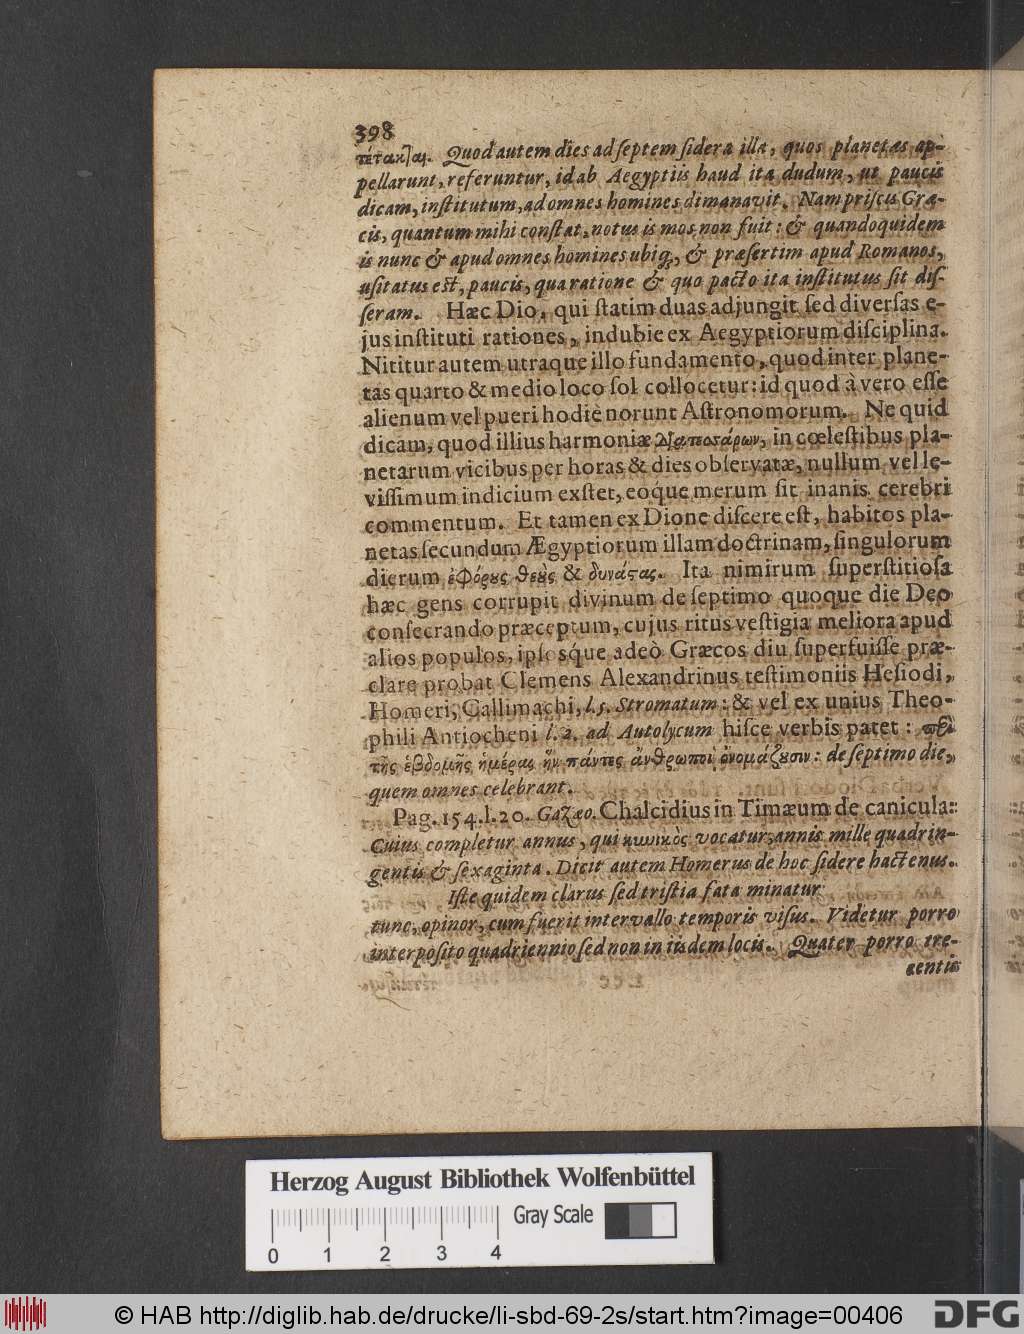 398
τέτακται. Quod autem dies ad ſeptem ſidera illa, quos planetas ap-
pellarunt, referuntur, id ab Aegyptiis haud ita dudum, ut paucis
dicam, inſtitutum, ad omnes homines dimanavit. Nam priſcis Græ-
cis, quantum mihi conſtat, notus is mos non fuit: & quandoquidem
is nunc & apud omnes homines ubiq́, & præſertim apud Romanos,
uſitatus eſt, paucis, qua ratione & quo pacto ita inſtitutus ſit diſ-
ſeram. Hæc Dio, qui ſtatim duas adjungit ſed diverſas e-
jus inſtituti rationes, indubie ex Aegyptiorum diſciplina.
Nititur autem utraque illo fundamento, quod inter plane-
tas quarto & medio loco ſol collocetur: id quod à vero eſſe
alienum vel pueri hodiè norunt Aſtronomorum. Ne quid
dicam, quod illius harmoniæ διατεσσάρων, in cœleſtibus pla-
netarum vicibus per horas & dies obſervatæ, nullum vel le-
viſſimum indicium exſtet, eóque merum ſit inanis cerebri
commentum. Et tamen ex Dione diſcere eſt, habitos pla-
netas ſecundum Ægyptiorum illam doctrinam, ſingulorum
dierum ἐφόρους θεοὺς & δυνάστας. Ita nimirum ſuperſtitioſa
hæc gens corrupit divinum de ſeptimo quoque die Deo
conſecrando præceptum, cujus ritus veſtigia meliora apud
alios populos, ipſosque adeò Græcos diu ſuperfuiſſe præ-
clare probat Clemens Alexandrinus teſtimoniis Heſiodi,
Homeri, Callimachi, l. 5. Stromatum: & vel ex unius Theo-
phili Antiocheni l. 2. ad Autolycum hiſce verbis patet: περὶ
τῆς ἑβδομῆς ἡμέρας ἣν πάντες ἄνθρωποι ὀνομάζουσιν: de ſeptimo die,
quem omnes celebrant.
Pag. 154. l. 20. Gazæo. Chalcidius in Timæum de canicula:
Cuius completur annus, qui κυνικὸς vocatur, annis mille quadrin-
gentis & ſexaginta. Dicit autem Homerus de hoc ſidere hactenus.
Iſte quidem clarus ſed triſtia fata minatur
tunc, opinor, cum fuerit intervallo temporis viſus. Videtur porro
interpoſito quadriennio ſed non in iisdem locis. Quater porro tre-
centis
Herzog August Bibliothek Wolfenbüttel
Gray Scale
0 1 2 3 4
© HAB http://diglib.hab.de/drucke/li-sbd-69-2s/start.htm?image=00406
DFG